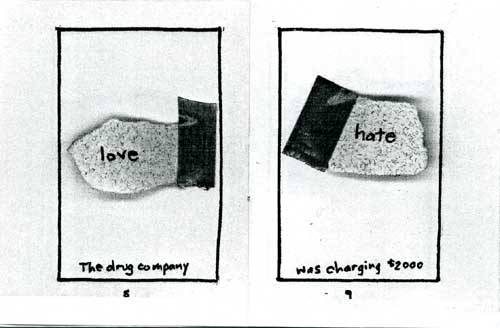 love
The drug company
8
hate
was charging $2000
9